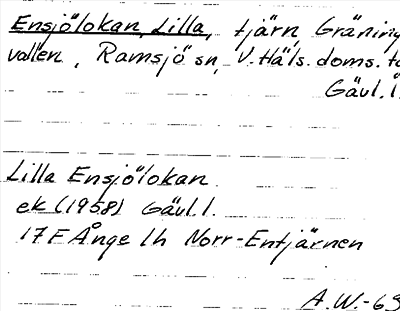 Ensjölokan, Lilla, tjärn, Gräning
vallen, Ramsjö sn, V. Häls. doms.
Gävl. l.
Lilla Ensjölokan
ek (1958) Gävl. l.
17F Ånge 1h Norr-Entjärnen
A.W.-63